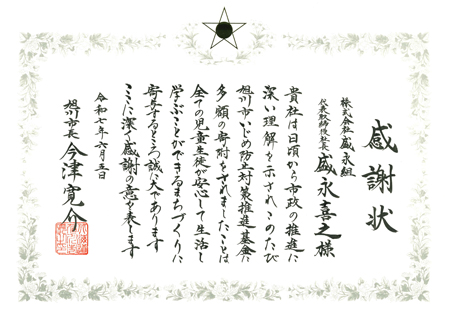 感謝状
株式会社盛永組
代表取締役社長 盛永喜之様
貴社は日頃から市政の推進に
深い理解を示されこのたび
旭川市いじめ防止対策推進基金に
多額の寄附をされましたことは
全ての児童生徒が安心して生活し
学ぶことができるまちづくりに
寄与するところ誠に大であります
ここに深く感謝の意を表します
令和七年六月五日
旭川市長 今津寛介